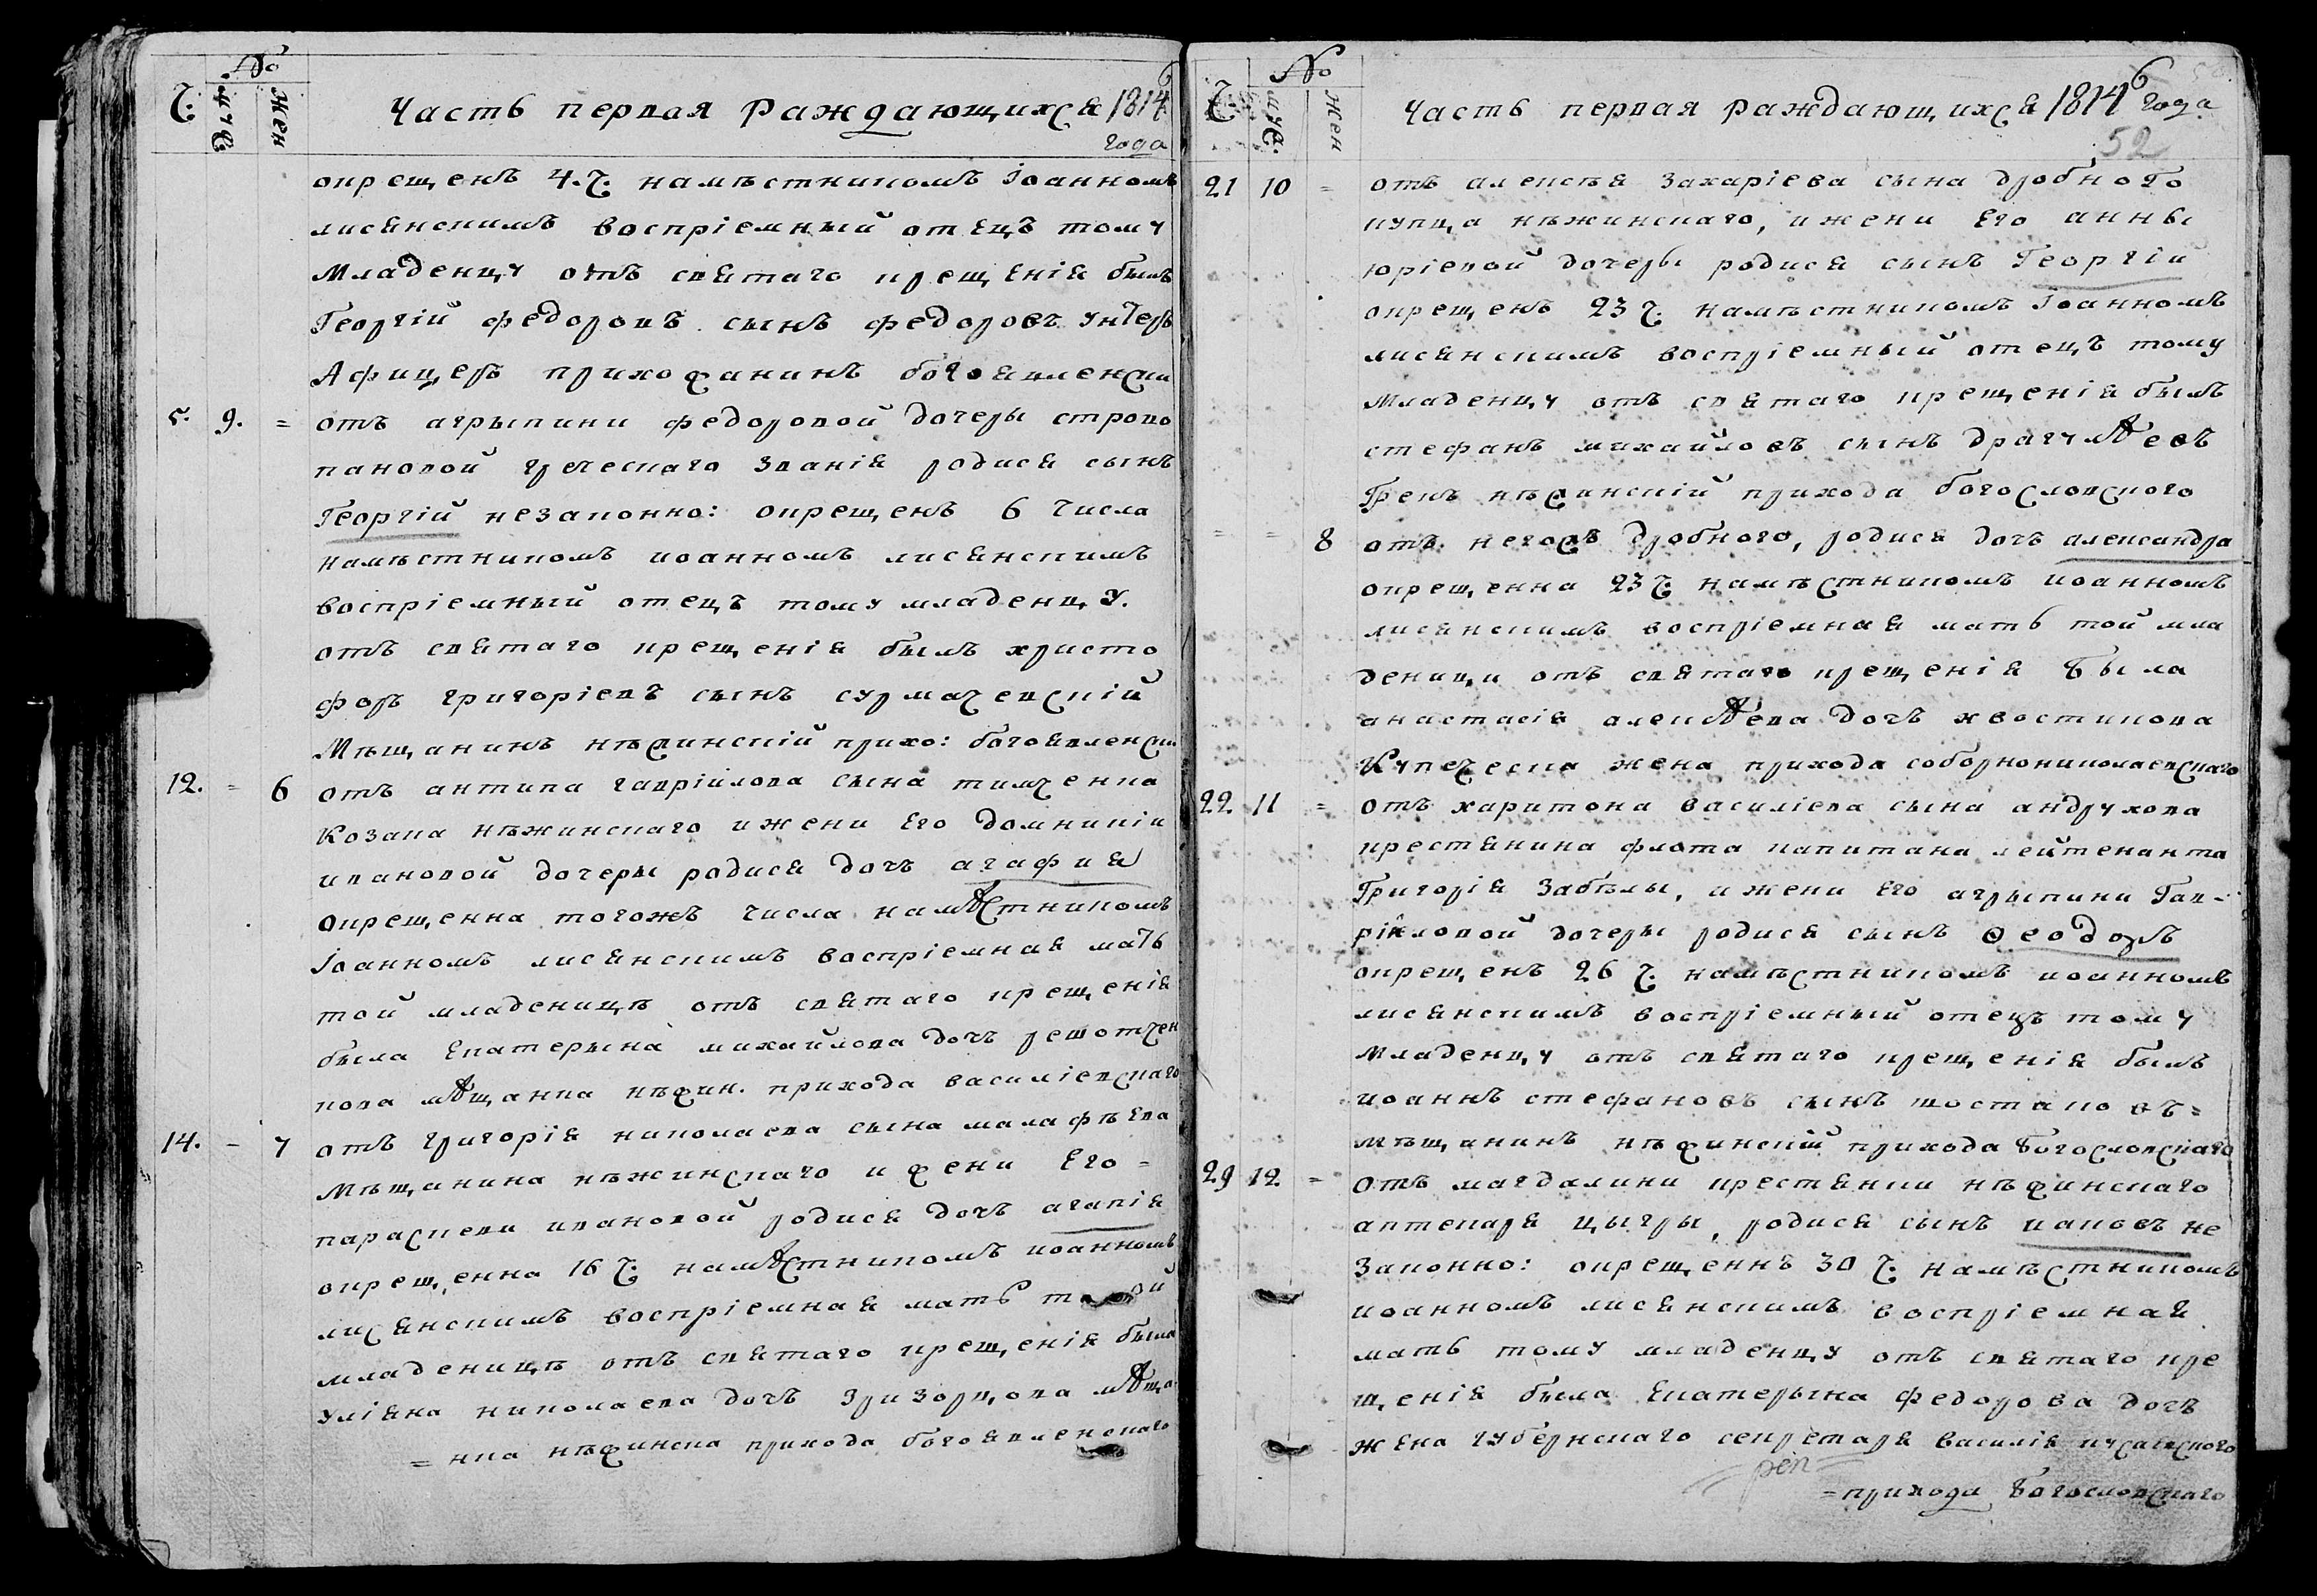 №
Ч. муж. жен
Часть первая Раждающихся 1814 6
года
окрещенъ 4. ч. намѣстникомъ Іоанномъ
лисянскимъ воспріемный отецъ тому
Младенцу отъ святаго крещенія былъ
Георгій федоровъ сынъ федоровъ унтеръ
Афицеръ прихожанинъ богоявленски
5. 9. = отъ агрыпини федоровой дочеры строко
пановой греческаго званія родися сынъ
Георгій незаконно: окрещенъ 6 числа
намѣстникомъ иоанномъ лисянскимъ
воспріемный отецъ тому младенцу.
отъ святаго крещенія былъ христо
форъ григоріевъ сынъ сурмачевскій
Мѣщанинъ нѣжинскій прихо: богоявленски
12. = 6 отъ антипа гавріилова сына тимченка
Козака нѣжинскаго и жени Его домникіи
ивановой дочеры родися дочъ агафия
окрещенна тогожъ числа намѣстникомъ
Іоанномъ лисянскимъ воспріемная мать
той младеницѣ отъ святаго крещенія
была Екатерына михайлова дочъ решотчен
кова мѣщанка нѣжин. прихода василіевскаго
14. – 7 отъ григорія николаева сына малафѣева
Мѣщанина нѣжинскаго и жени Его =
параскеви ивановой родися дочъ агапія
окрещенна 16 ч. намѣстникомъ иоанномъ
лисянскимъ воспріемная мать той
младеницѣ отъ святаго крещенія была
уліяна николаева дочъ Зризорцова мѣща
= нка нѣжинска прихода богоявленскаго
№
Ч. муж. жен
Часть первая раждающихся 1814 6 года
52
21 10 = отъ алексѣя захаріева сына дробного
купца нѣжинскаго, и жени Его анны
юріевой дочеры родися сынъ Георгій
окрещенъ 23 ч. намѣстникомъ Іоанномъ
лисянскимъ воспріемный отецъ тому
Младенцу отъ святаго крещенія былъ
стефанъ михайловъ сынъ драгумѣевъ
Грекъ нѣжинскій прихода богословского
= = 8 отъ негожъ дробного, родися дочъ александра
окрещенна 23 ч. намѣстникомъ иоанномъ
лисянскимъ воспріемная мать той мла
деници отъ святаго крещенія была
анастасія алексѣева дочъ хвостикова
Купеческа жена прихода соборнониколаевскаго
22 11 = отъ харитона василіева сына андрухова
крестянина флота капитана лейтенанта
Григорія Забѣлы, и жени Его агрыпини Гав-
ріиловой дочеры родися сынъ Ѳеодоръ
окрещенъ 26 ч. намѣстникомъ иоанномъ
лисянскимъ воспріемный отецъ тому
Младенцу отъ святаго крещенія былъ
иоаннъ стефановъ сынъ шостаковъ =
мѣщанинъ нѣжинскій прихода Богословскаго
29 12 = отъ магдалини крестянки нѣжинскаго
аптекаря цыгры, родися сынъ иаковъ не
Законно: окрещеннъ 30 ч. намѣстникомъ
иоанномъ лисянскимъ воспріемная
мать тому младенцу отъ святаго кре
щенія была Екатерына федорова дочъ
жена губернскаго секретаря василія
= прихода Богословскаго